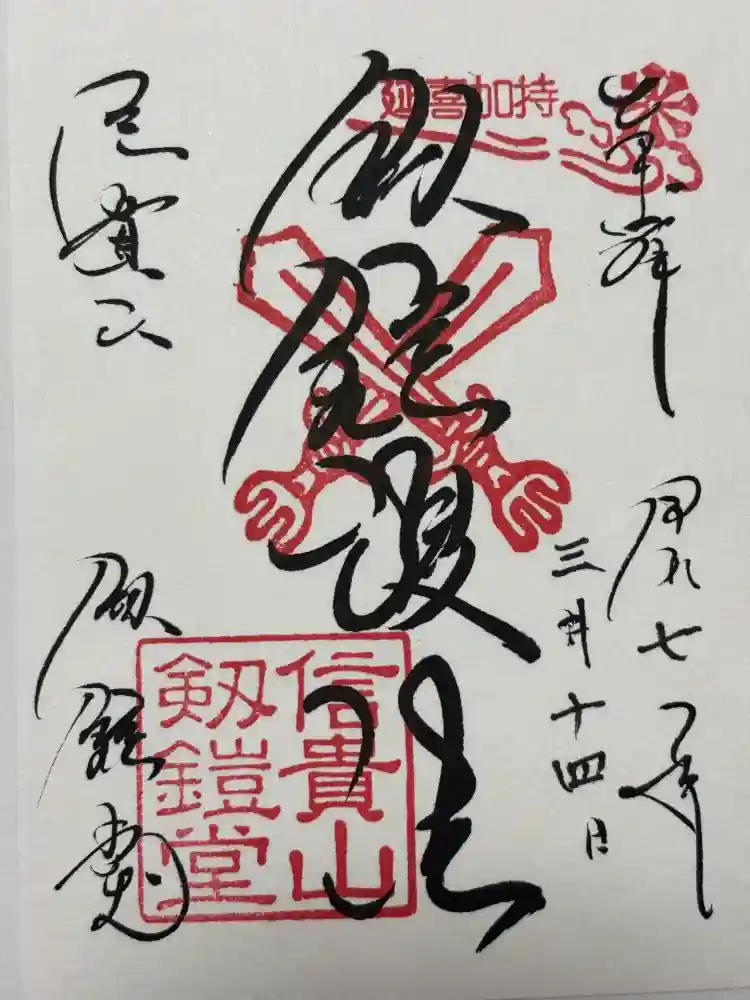 奉拝
令和七年
三月十四日
延喜加持
剱鎧護法
信貴山
剱鎧堂
信貴山
剱鎧堂